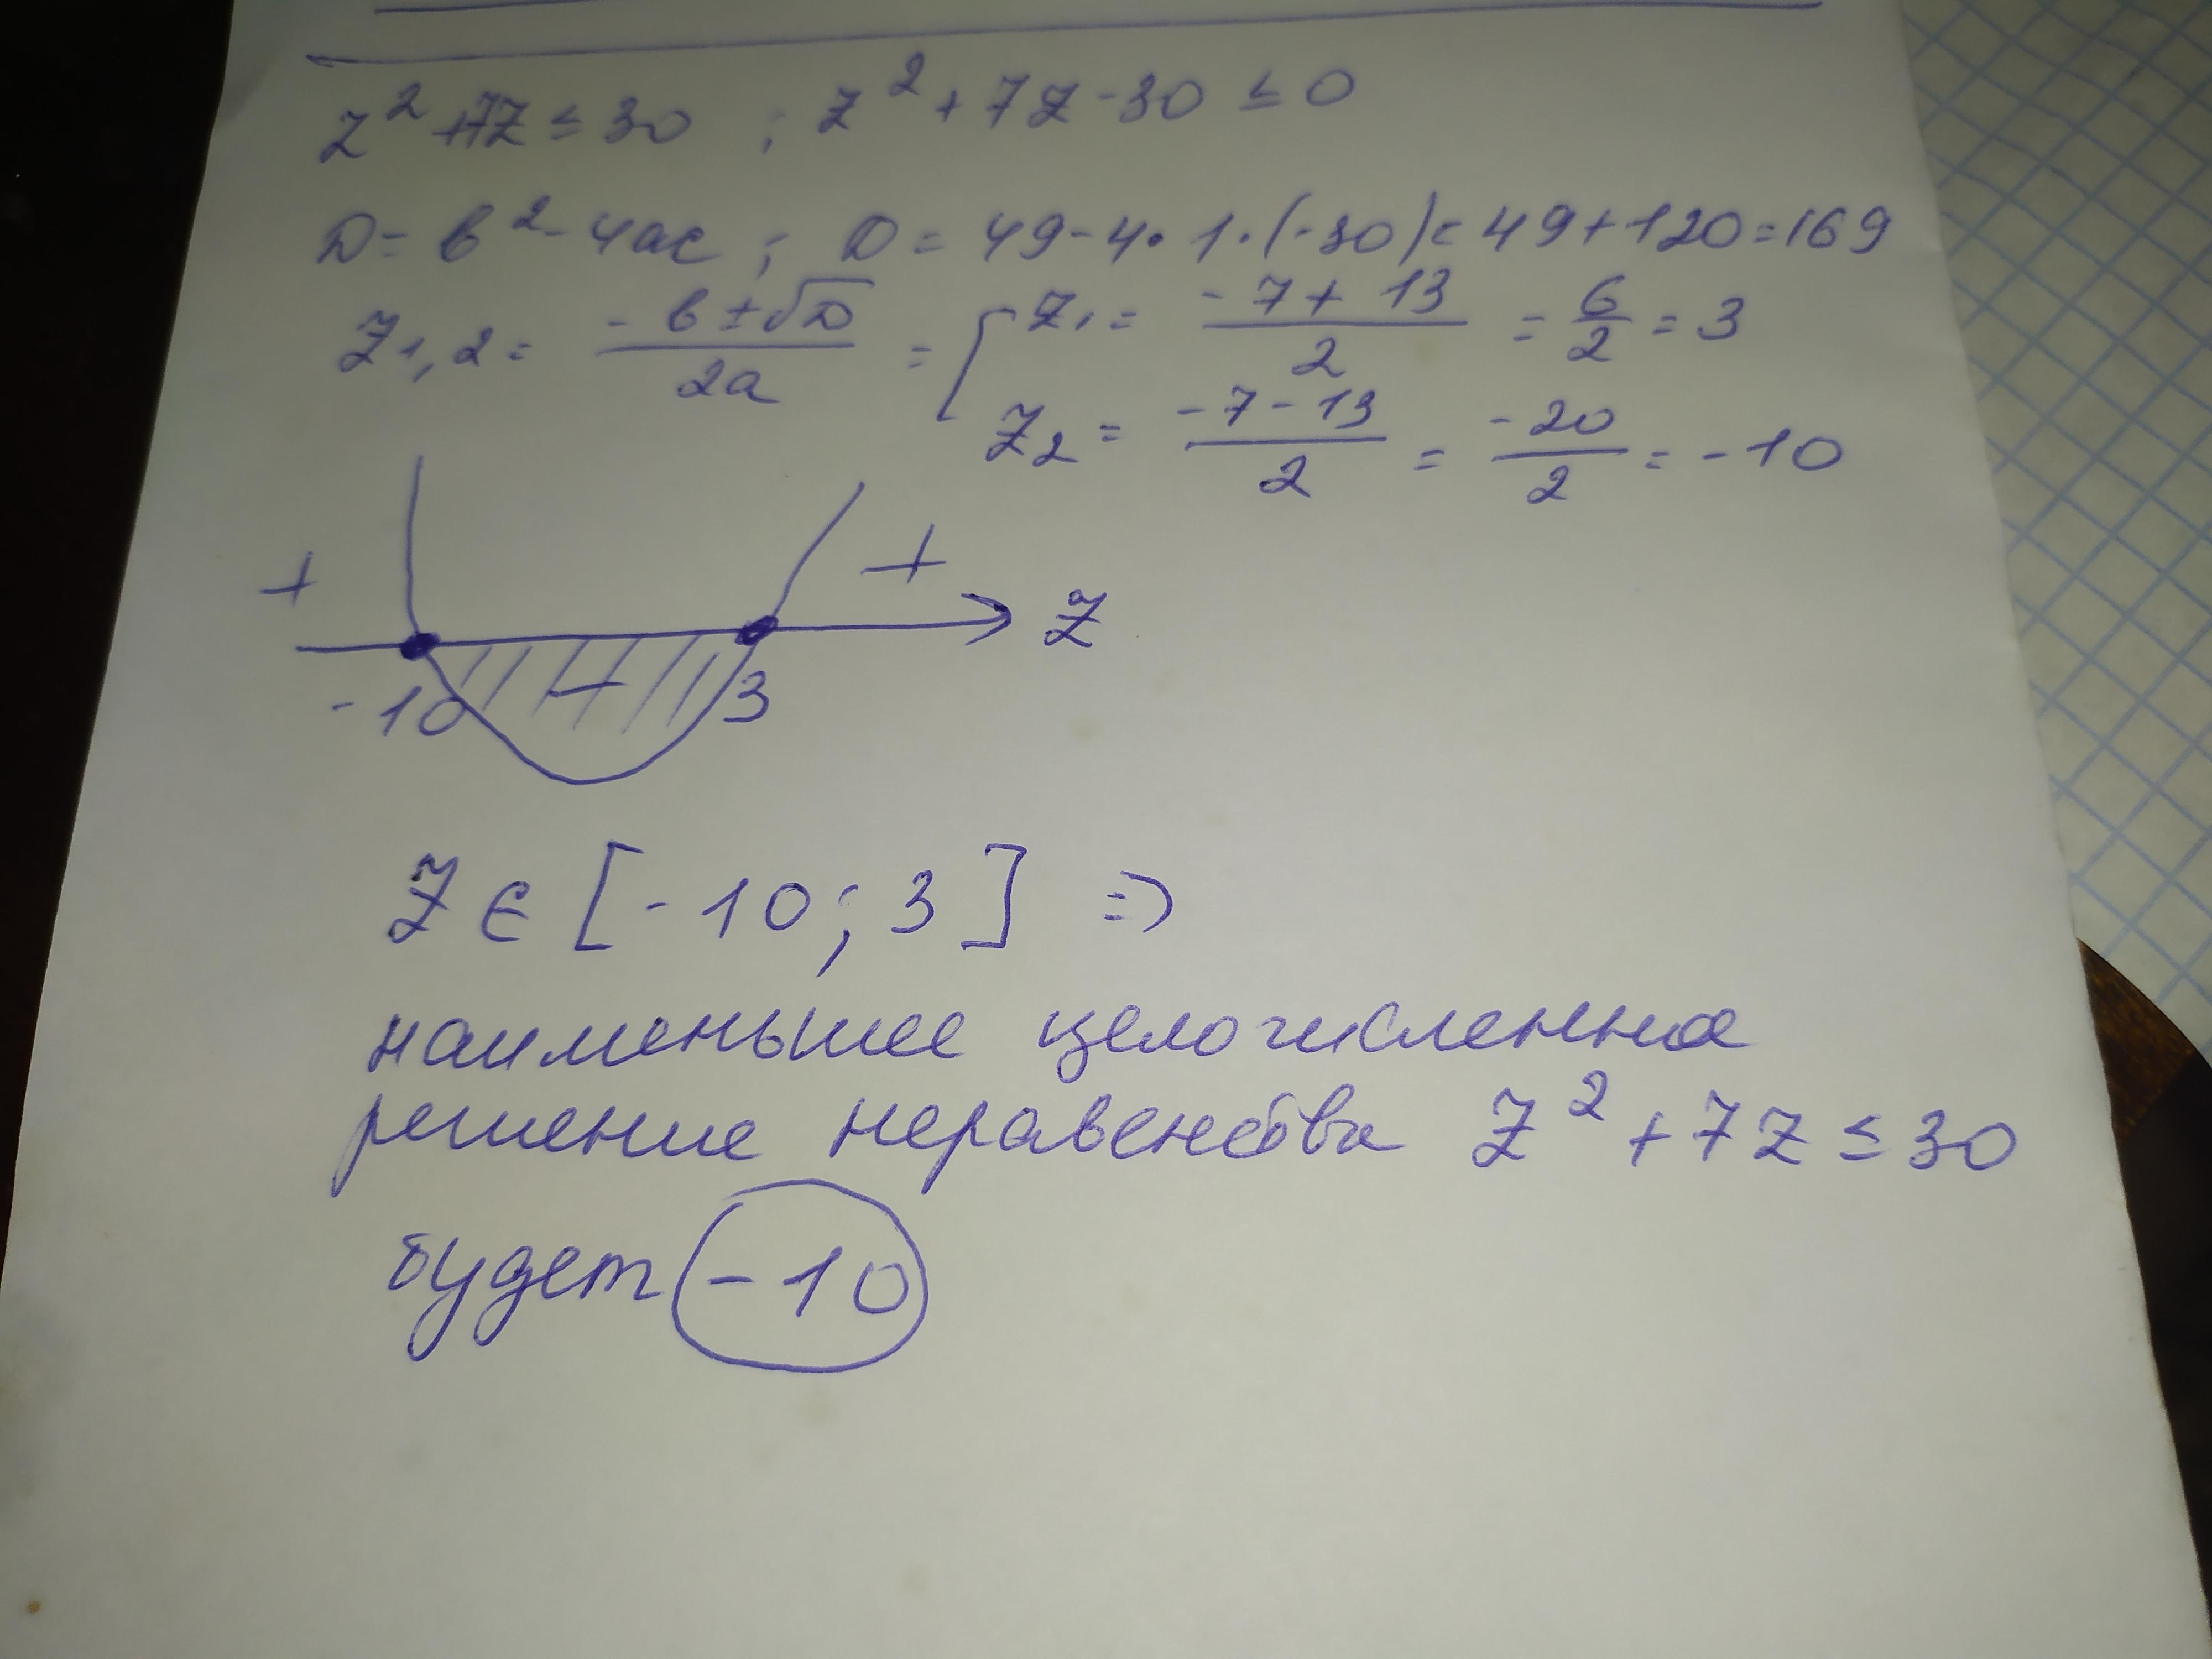 z² + 7z ≤ 30 ; z² + 7z - 30 ≤ 0
D = b² - 4ac ; D = 49 - 4 · 1 · (-30) = 49 + 120 = 169
z₁,₂ = (-b ± √D)/2a = [ z₁ = (-7 + 13)/2 = 6/2 = 3
z₂ = (-7 - 13)/2 = -20/2 = -10
+ + z
-10 - 3
z ∈ [-10; 3] ⇒
наименьшее целочисленное
решение неравенства z² + 7z ≤ 30
будет -10